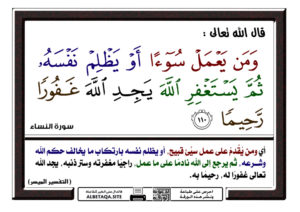 قال الله تعالى :
وَمَن يَعْمَلْ سُوٓءًا أَوْ يَظْلِمْ نَفْسَهُۥ
ثُمَّ يَسْتَغْفِرِ ٱللَّهَ يَجِدِ ٱللَّهَ غَفُورًا
رَّحِيمًا ١١٠
سورة النساء
أي ومن يُقدم على عمل سيّئ قبيح، أو يظلم نفسه بارتكاب ما يخالف حكم الله
وشرعه، ثم يرجع إلى الله نادمًا على ما عمل، راجيًا مغفرته وستر ذنبه، يجد الله
تعالى غفورًا له، رحيمًا به.
(التفسير الميسر)
ALBETAQA.SITE